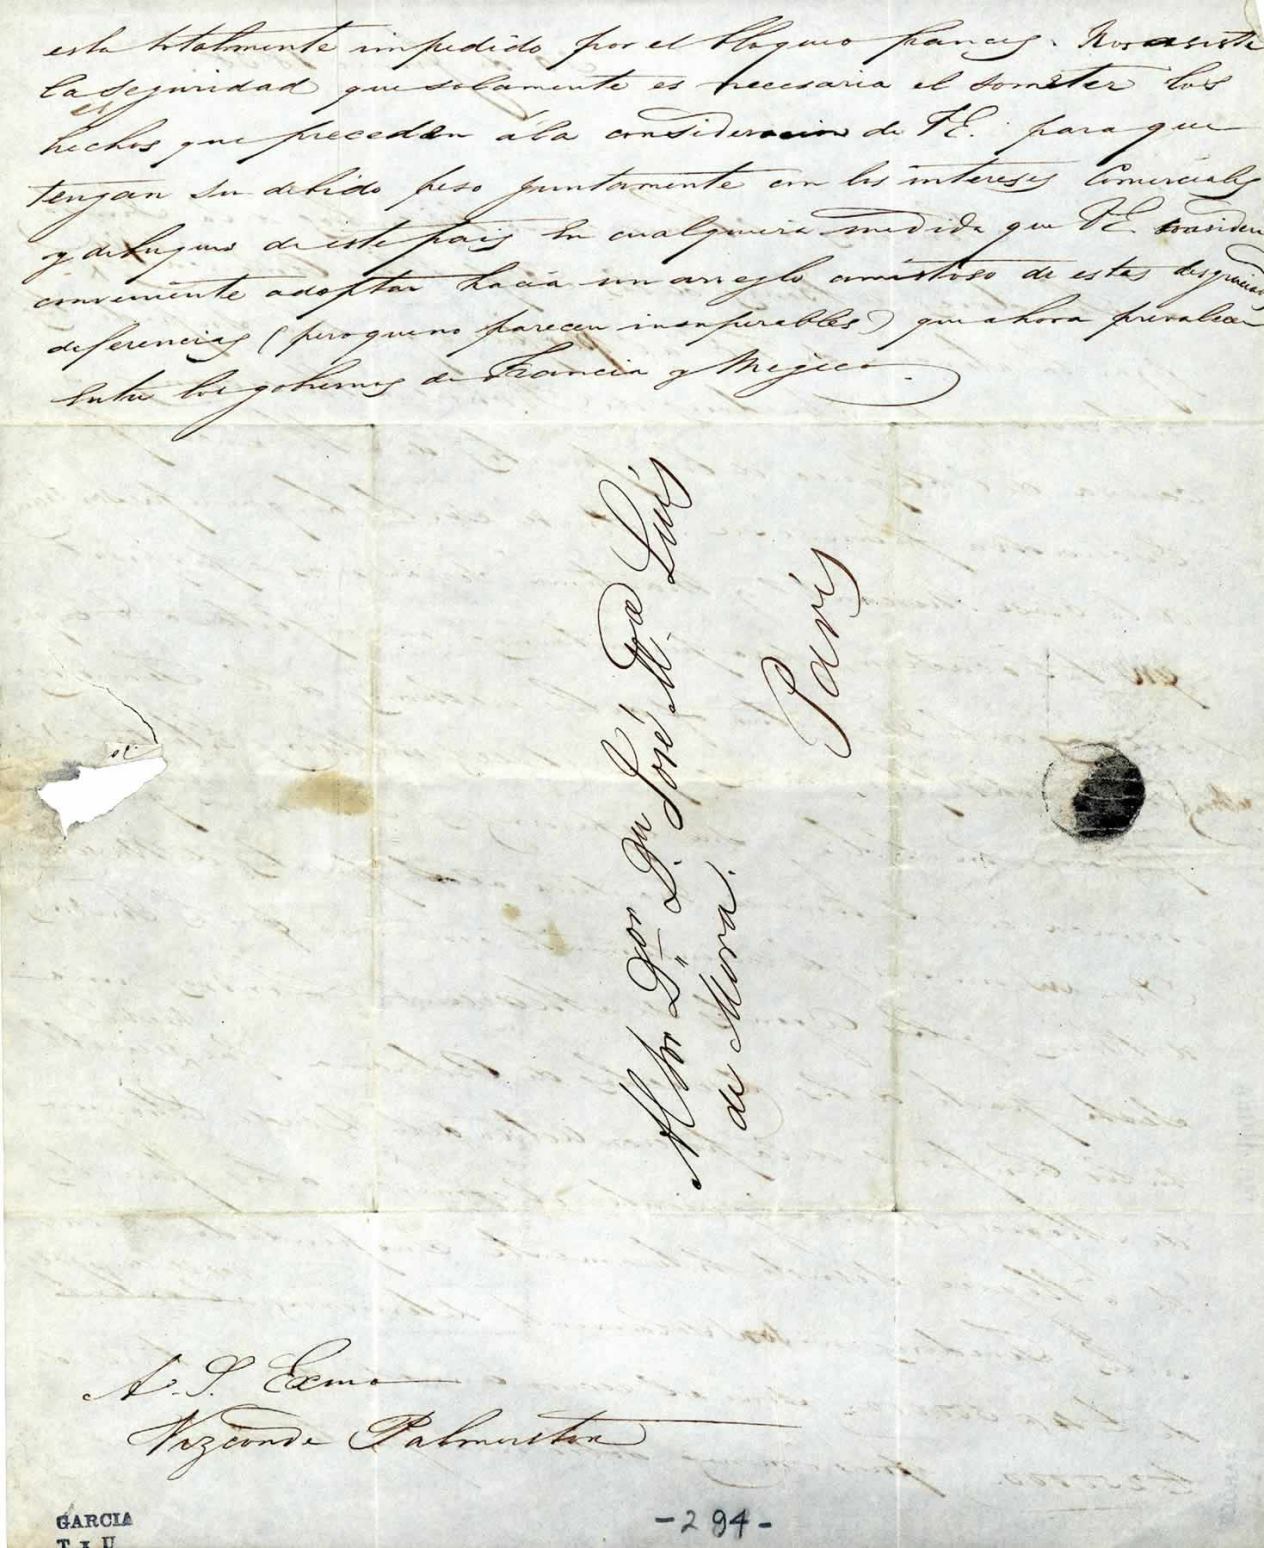 esta totalmente impedido por el bloqueo frances. Nos asiste
la seguridad que solamente es necesario el someter los
hechos que preceden á la consideracion de V.E. para que
tengan su debido peso juntamente con los intereses Comerciales
y de este pais en cualquiera medida que V.E. considere
conveniente adoptar hacia un arreglo amistoso de estas desgraciadas
diferencias (pero que no parecen insuperables) que ahora prevalecen
entre los gobiernos de Francia y Mejico.
Al Sor Dor Dn José Ma Luís
de Mora.
París
A. S. Exmo
Vizconde Palmerston
GARCIA
-294-